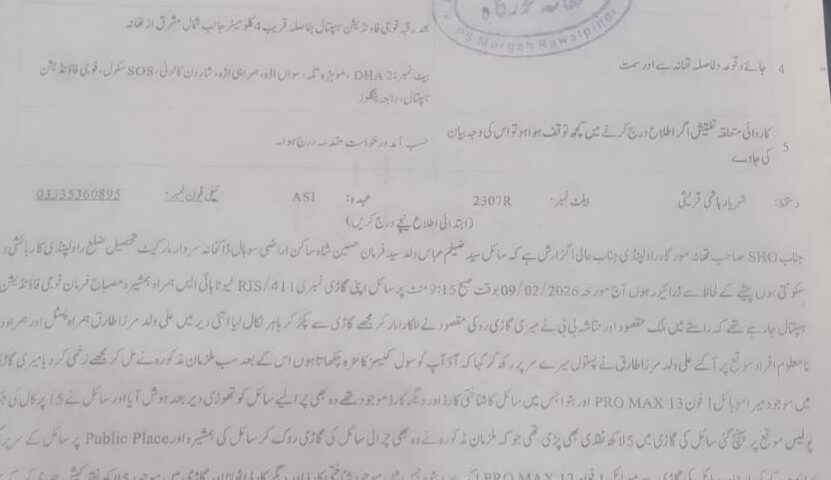 تھانہ مورگاہ
PS Morgah Rawalpindi
بندرقبہ فوجی فاؤنڈیشن ہسپتال بفاصلہ قریب 4 کلومیٹر جانب شمال مشرق از تھانہ
4 جائے وقوعہ و فاصلہ تھانہ سے اور سمت
بیٹ نمبر: DHA 2، موہڑہ نگہ، سواں اڈہ، ہمراہی اڈہ، شارون کالونی، SOS سکول، فوجی فاؤنڈیشن
ہسپتال، رابعہ بنگلوز
5 کاروائی متعلقہ تفتیش اگر اطلاع درج کرنے میں کچھ توقف ہوا ہو تو اس کی وجہ بیان
کی جاوے
حسب آمدہ درخواست مقدمہ درج ہوا۔
دستخط: شہریار ہاشمی قریشی بیلٹ نمبر: 2307R عہدہ: ASI ٹیلی فون نمبر: 03335360895
(ابتدائی اطلاع نیچے درج کریں)
جناب SHO صاحب تھانہ مورگاہ راولپنڈی جناب عالی! گزارش ہے کہ سائل سید ضیغم عباس ولد سید فرمان حسین شاہ ساکن اراضی سوہال ڈاکخانہ سردار مارکیٹ تحصیل ضلع راولپنڈی کا رہائشی و
سکونتی ہوں پیشے کے لحاظ سے ڈرائیور ہوں آج مورخہ 09/02/2026 بوقت صبح 9:15 منٹ پر سائل اپنی گاڑی نمبری RIS/411 ٹیوٹا ہائی ایس ہمراہ ہمشیرہ مصباح فرمان فوجی فاؤنڈیشن
ہسپتال جا رہے تھے کہ راستے میں ملک مقصود اور نتاشہ بی بی نے میری گاڑی روکی مقصود نے للکارا مار کر مجھے گاڑی سے پکڑ کر باہر نکال لیا اتنی دیر میں علی ولد مرزا طارق ہمراہ پسٹل اور ہمراہ دو
نامعلوم افراد موقع پر آ گئے علی ولد مرزا طارق نے پستول میرے سر پر رکھ کر کہا کہ آؤ آپ کو سول کیسز کا مزہ چکھاتا ہوں اس کے بعد سب ملزمان مذکورہ نے مل کر مجھے زخمی کر دیا میری گاڑی
میں موجود میرا موبائل آئی فون 13 PRO MAX اور بٹوا جس میں سائل کا شناختی کارڈ اور دیگر کارڈ موجود تھے وہ بھی چرا لیے سائل کو تھوڑی دیر بعد ہوش آیا اور سائل نے 15 پر کال کی جو
پولیس موقع پر پہنچ گئی سائل کی گاڑی میں 5 لاکھ نقدی بھی پڑی تھی جو کہ ملزمان مذکورہ نے وہ بھی چرا لی سائل کی گاڑی روک کر سائل کی ہمشیرہ اور Public Place پر سائل کے سر پر